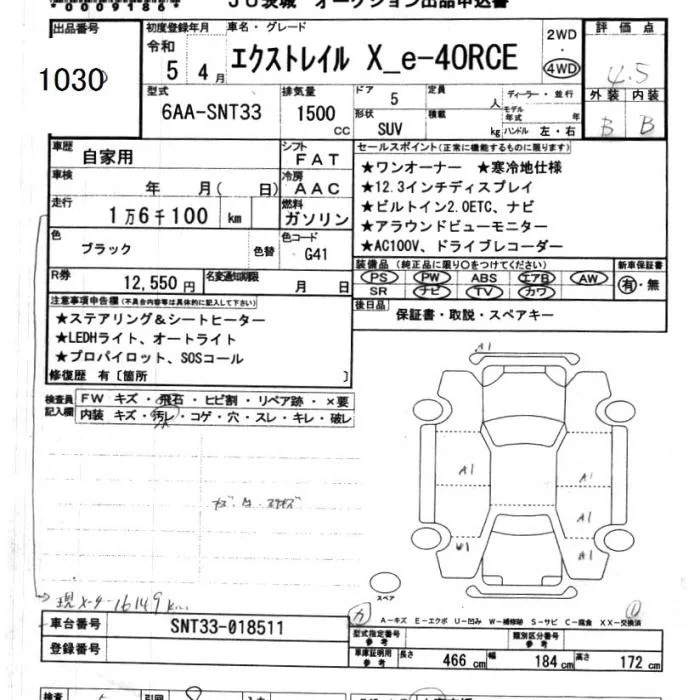 *0009186*
JU茨城 オークション出品申込書
出品番号 1030
初度登録年月 令和 5年 4月
車名・グレード エクストレイル X_e-4ORCE
2WD
4WD
評価点 4.5
外装 B 内装 B
型式 6AA-SNT33
排気量 1500 CC
ドア 5
形状 SUV
定員 人
積載 kg
ディーラー・並行
モデル年式 年
ハンドル 左・右
車歴 自家用
シフト FAT
車検 年 月( 日)
冷房 AAC
走行 1万6千100 km
燃料 ガソリン
色 ブラック 色替
色コード G41
R券 12,550円
名変通知期限 月 日
セールスポイント(正常に機能するものに限ります)
★ワンオーナー ★寒冷地仕様
★12.3インチディスプレイ
★ビルトイン2.0ETC、ナビ
★アラウンドビューモニター
★AC100V、ドライブレコーダー
装備品(純正品に限り○をつけてください)
PS PW ABS エアB AW
SR ナビ TV カワ
新車保証書
有・無
後日品 保証書・取説・スペアキー
注意事項申告欄(不具合内容等は具体的に記入して下さい)
★ステアリング&シートヒーター
★LEDHライト、オートライト
★プロパイロット、SOSコール
修復歴 有〔箇所 〕
検査員記入欄
FW キズ・飛石・ヒビ割・リペア跡・×要
内装 キズ・汚レ・コゲ・穴・スレ・キレ・破レ
A1
A1
A1
A1
A1
W1
スペア
現メーター16149km
A-キズ E-エクボ U-凹み W-補修跡 S-サビ C-腐食 XX-交換済
車台番号 SNT33-018511
登録番号
型式指定番号 参考
類別区分番号 参考
車庫証明用 参考 長さ 466cm 幅 184cm 高さ 172cm
検査